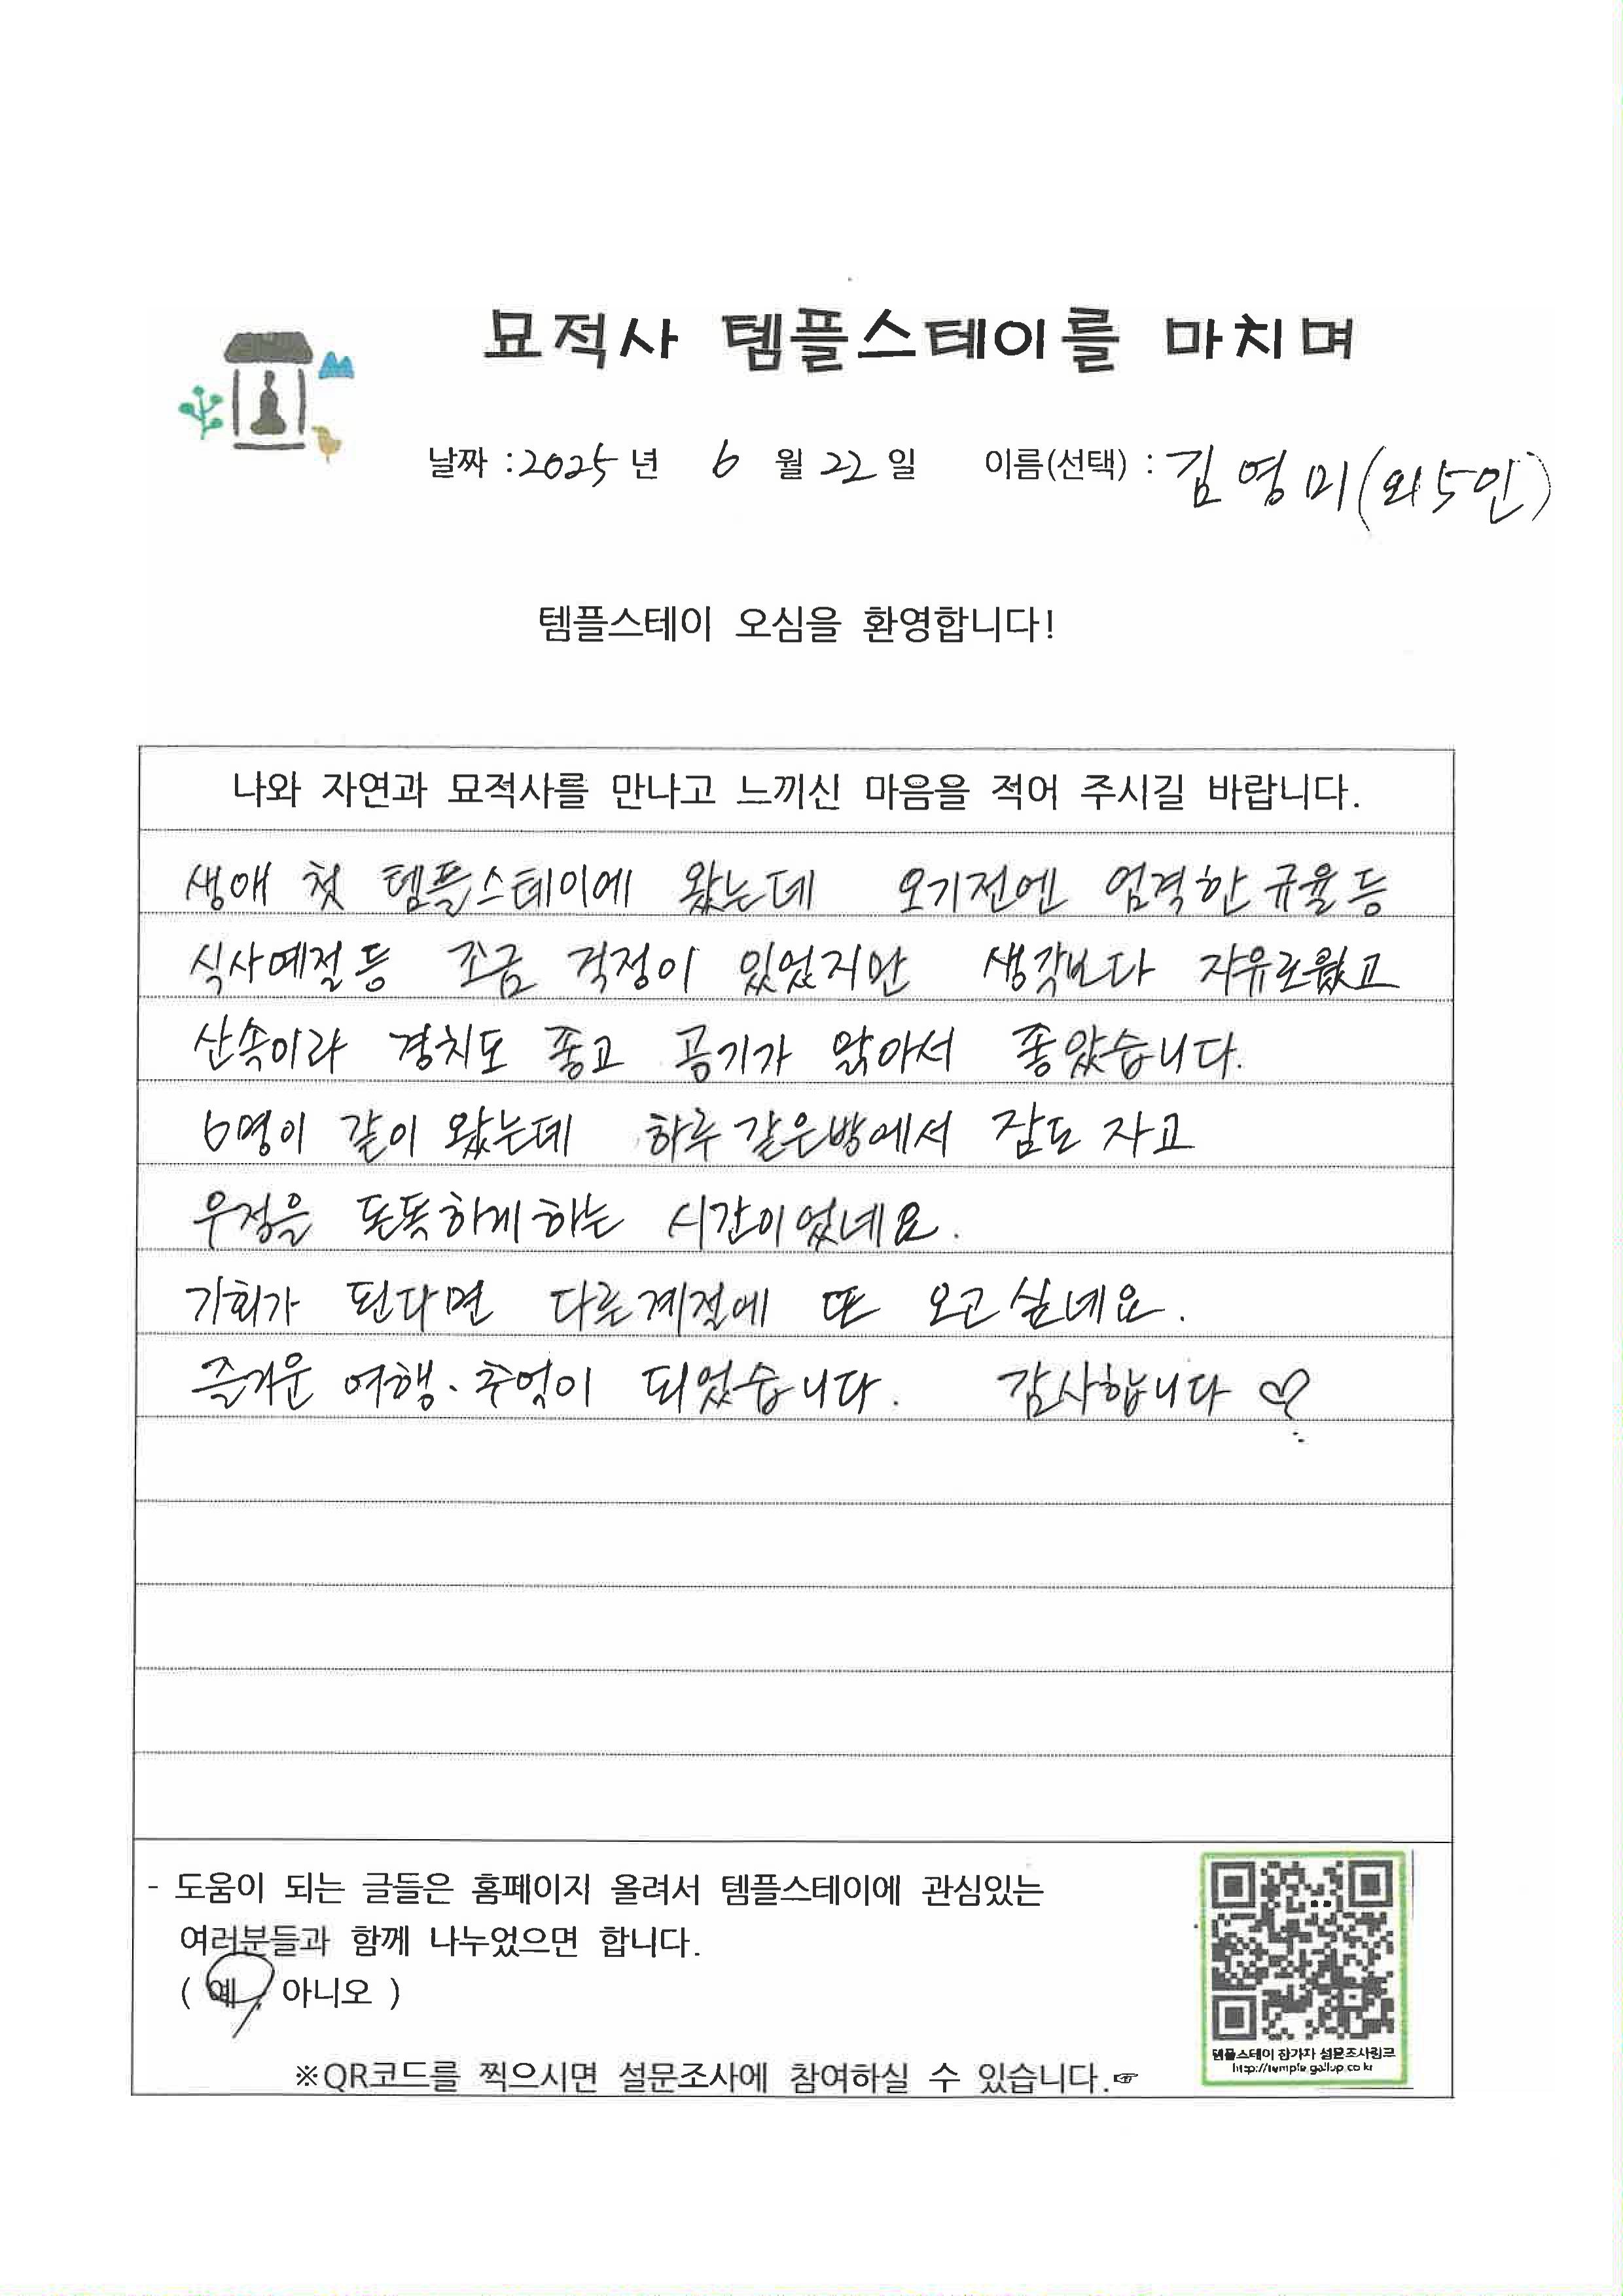 묘적사 템플스테이를 마치며
날짜 : 2025 년 6 월 22 일 이름(선택) : 김영미(외5인)
템플스테이 오심을 환영합니다!
나와 자연과 묘적사를 만나고 느끼신 마음을 적어 주시길 바랍니다.
생애 첫 템플스테이에 왔는데 오기전엔 엄격한 규율등
식사예절등 조금 걱정이 있었지만 생각보다 자유로웠고
산속이라 경치도 좋고 공기가 맑아서 좋았습니다.
6명이 같이 왔는데 하루 같은방에서 잠도 자고
우정을 돈독하게하는 시간이었네요.
기회가 된다면 다른계절에 또 오고싶네요.
즐거운 여행. 추억이 되었습니다. 감사합니다 ♡
- 도움이 되는 글들은 홈페이지 올려서 템플스테이에 관심있는
여러분들과 함께 나누었으면 합니다.
( 예 , 아니오 )
※QR코드를 찍으시면 설문조사에 참여하실 수 있습니다.☞
템플스테이 참가자 설문조사링크
http://temple.gallup.co.kr